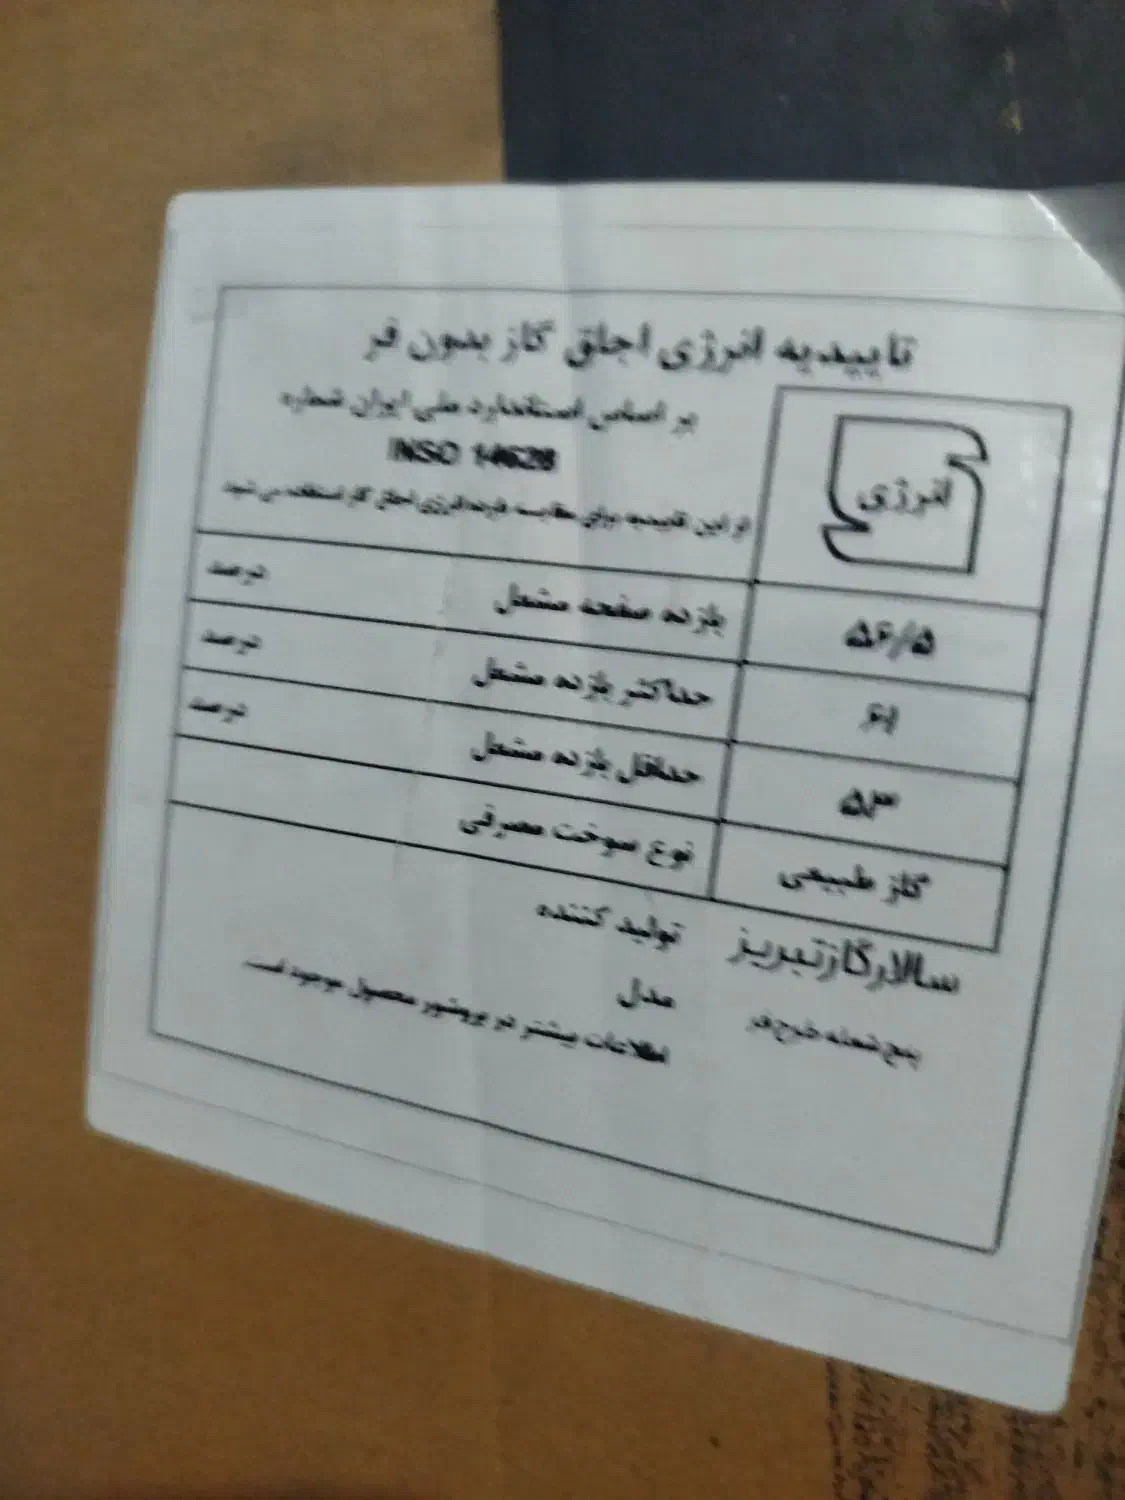 تاییدیه انرژی اجاق گاز بدون فر
بر اساس استاندارد ملی ایران شماره
INSO 14628
از این تاییدیه برای مقایسه بازده انرژی اجاق گاز استفاده می شود
انرژی
۵۶/۵ بازده صفحه مشعل درصد
۶۱ حداکثر بازده مشعل درصد
۵۳ حداقل بازده مشعل درصد
گاز طبیعی نوع سوخت مصرفی
سالارگاز تبریز تولید کننده
پنج شعله طرح فر مدل
اطلاعات بیشتر در بروشور محصول موجود است